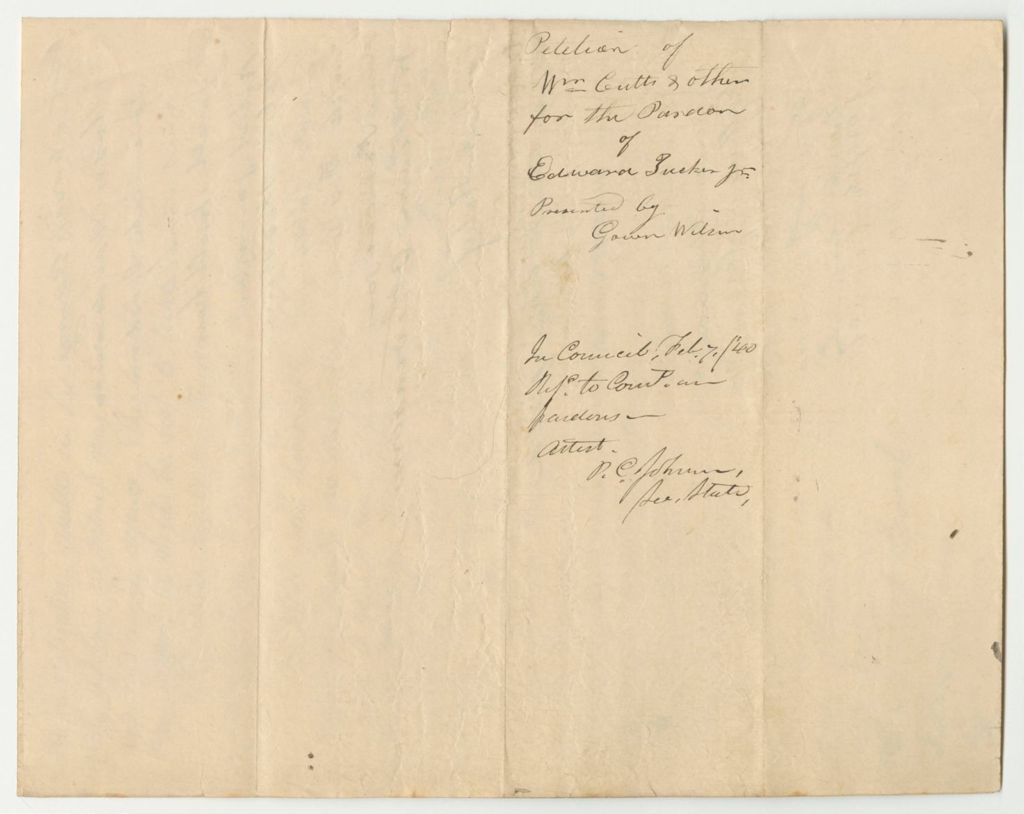 Petition of
Wm Cutts & others
for the Pardon
of
Edward Tucker Jr.
Presented by
Gowen Wilson
In Council, Feb. 7, /40
Ref'd to Com. on
pardons
Attest.
P. C. Johnson,
Sec. State,